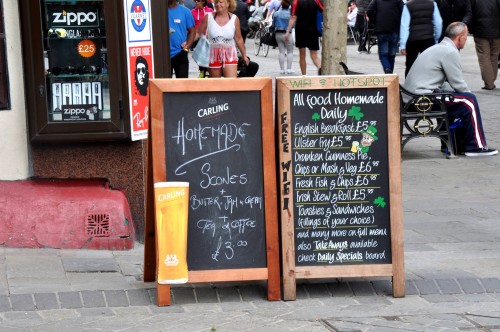 zippo
£25
zippo
RED
CARLING
HOMEMADE
SCONES
BUTTER, JAM & CREAM
+
TEA or COFFEE
£3.00
CARLING
WIFI & HOTSPOT
FREE WIFI
All Food Homemade
Daily
English Breakfast £5.95
Ulster fry £5.95
Drunken Guinness £5.95
Chips or Mash & Veg £6.95
Fresh Fish & Chips £6.95
Irish Stew & Roll £5.95
Toasties & Sandwiches
(fillings of your choice)
and many more on full menu
also Take Aways available
check Daily Specials board